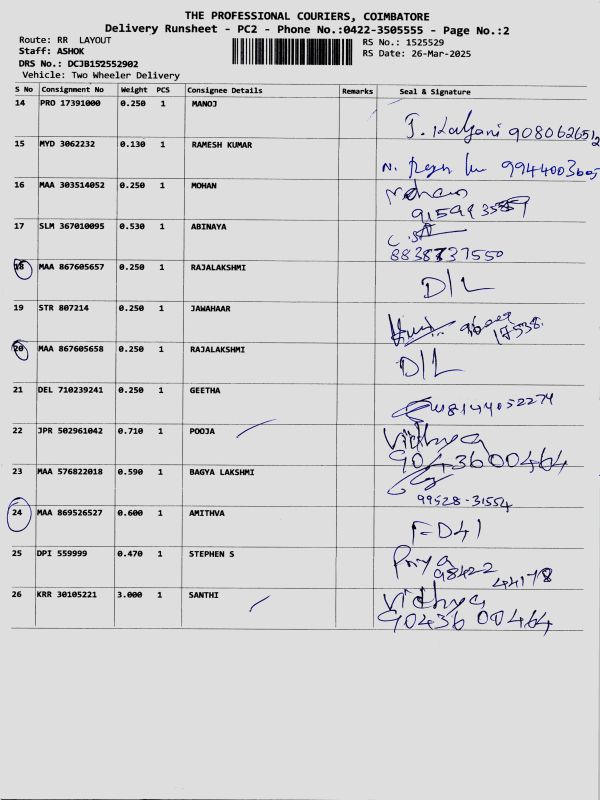 THE PROFESSIONAL COURIERS, COIMBATORE
Delivery Runsheet - PC2 - Phone No.:0422-3505555 - Page No.:2
Route: RR LAYOUT
Staff: ASHOK
DRS No.: DCJB152552902
Vehicle: Two Wheeler Delivery
RS No.: 1525529
RS Date: 26-Mar-2025
S No Consignment No Weight PCS Consignee Details Remarks Seal & Signature
14 PRO 17391000 0.250 1 MANOJ
J. Kalyani 9080626512
15 MYD 3062232 0.130 1 RAMESH KUMAR
N. 9944003605
16 MAA 303514052 0.250 1 MOHAN
Mohan
17 SLM 367010095 0.530 1 ABINAYA
8838737550
18 MAA 867605657 0.250 1 RAJALAKSHMI
D/L
19 STR 807214 0.250 1 JAWAHAAR
17538
20 MAA 867605658 0.250 1 RAJALAKSHMI
D/L
21 DEL 710239241 0.250 1 GEETHA
8144052274
22 JPR 502961042 0.710 1 POOJA
Vidhya
9043600464
23 MAA 576822018 0.590 1 BAGYA LAKSHMI
99528-31554
24 MAA 869526527 0.600 1 AMITHVA
F-D41
25 DPI 559999 0.470 1 STEPHEN S
Priya
98422 44178
26 KRR 30105221 3.000 1 SANTHI
Vidhya
9043600464